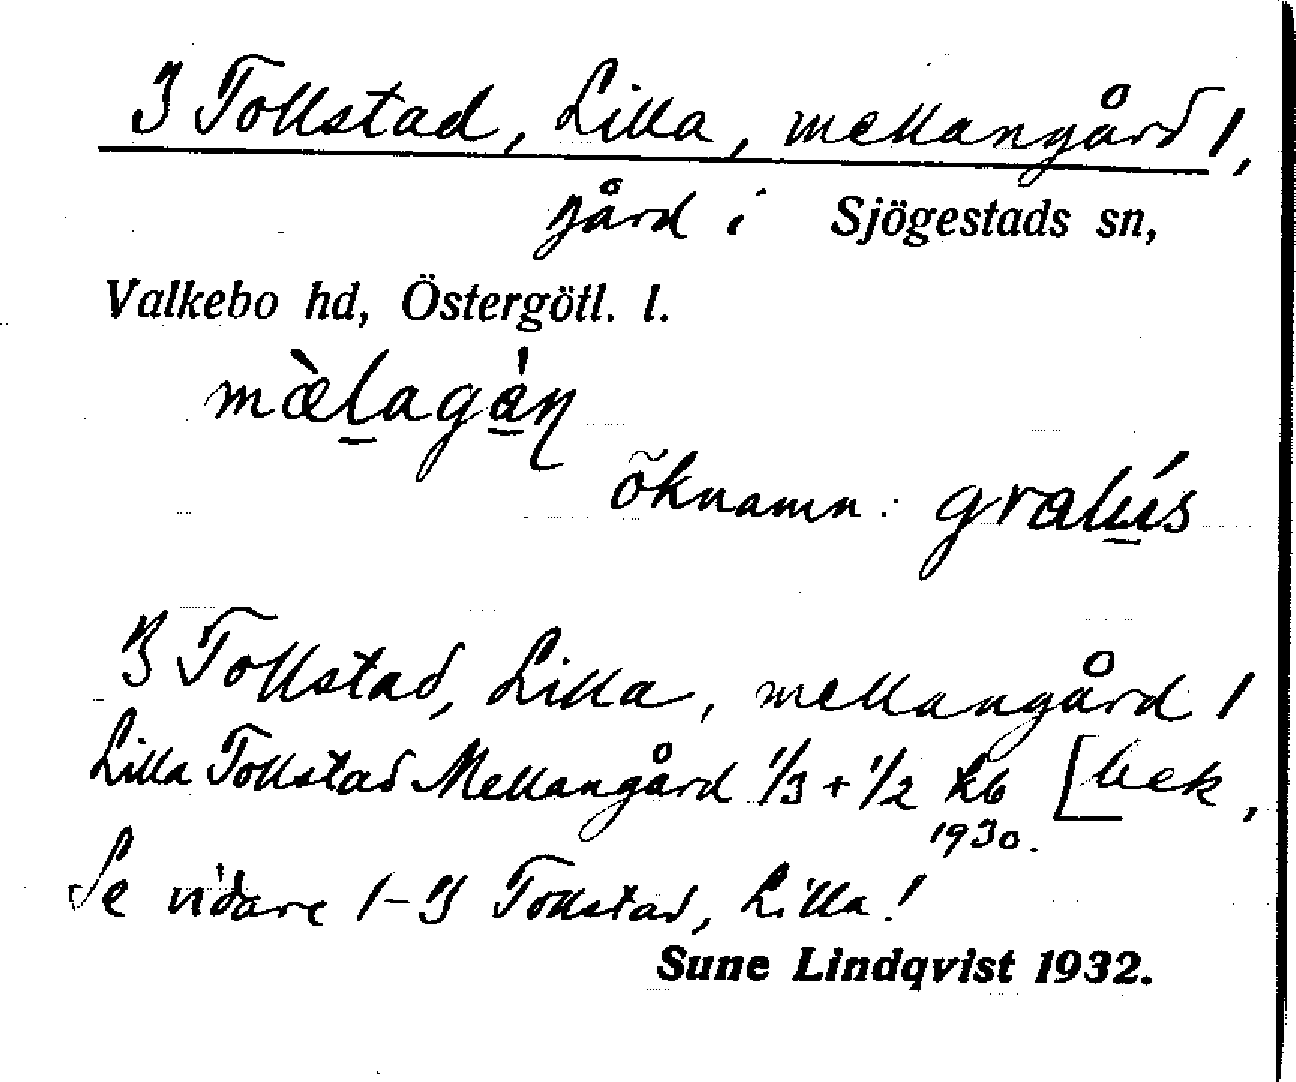 3 Tollstad, Lilla, mellangård 1,
gård i Sjögestads sn,
Valkebo hd, Östergötl. l.
mæ̀lagàn̩
öknamn: gralús
3 Tollstad, Lilla, mellangård 1
Lilla Tollstad Mellangård 1/3 + 1/2 Lb [bek,
1930.
Se vidare 1-3 Tollstad, Lilla!
Sune Lindqvist 1932.